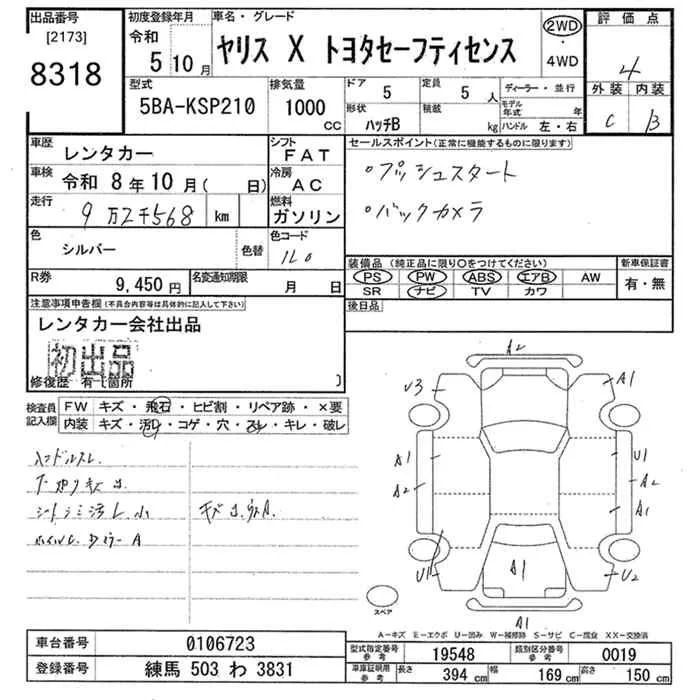 出品番号
[2173]
8318
初度登録年月
令和
5 10 月
車名・グレード
ヤリス X トヨタセーフティセンス
2WD
・
4WD
評価点
4
外装 内装
C B
型式
5BA-KSP210
排気量
1000 cc
ドア 5
定員 5 人
形状 ハッチB
積載 kg
ディーラー・並行
モデル年式 年
ハンドル 左・右
車歴 レンタカー
シフト FAT
車検 令和 8年10月( 日)
冷房 AC
走行 9万2千568 km
燃料 ガソリン
色 シルバー 色替
色コード 1L0
R券 9,450円
名変通知期限 月 日
セールスポイント(正常に機能するものに限ります)
・プッシュスタート
・バックカメラ
装備品(純正品に限り○をつけてください)
PS PW ABS エアB AW
SR ナビ TV カワ
新車保証書
有・無
後日品
注意事項申告欄(不具合内容等は具体的に記入して下さい)
レンタカー会社出品
初出品
修復歴 有(箇所 )
検査員記入欄
FW キズ・飛石・ヒビ割・リペア跡・×要
内装 キズ・汚レ・コゲ・穴・スレ・キレ・破レ
ハンドルスレ
下廻りキズ
シートシミ汚レ小
A2
U3 A1
A1 U1
A2 A2
A1
U1 A1 U2
A1
スペア
A-キズ E-エクボ U-凹み W-補修跡 S-サビ C-腐食 XX-交換済
車台番号 0106723
登録番号 練馬 503 わ 3831
型式指定番号 参考 19548
類別区分番号 参考 0019
車庫証明用 参考 長さ 394 cm 幅 169 cm 高さ 150 cm